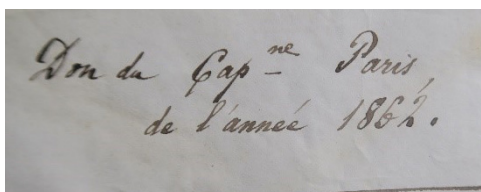 Don du Cap^ne Paris,
de l'année 1862.